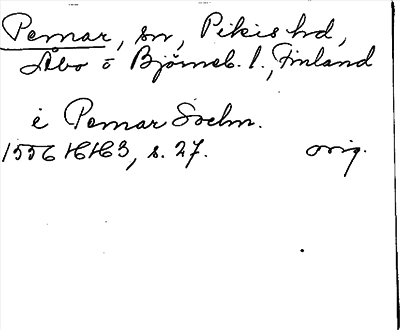 Pemar, sn, Pikis hd,
Åbo o Björneb. l., Finland
i Pemar Socken.
1556 HH 3, s. 27. orig.